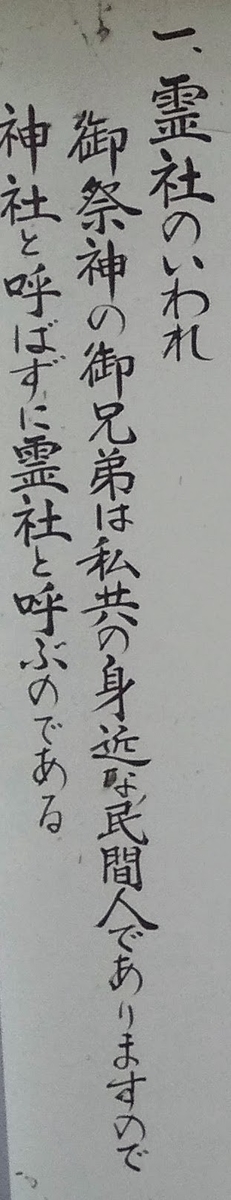 一、霊社のいわれ
御祭神の御兄弟は私共の身近な民間人でありますので
神社と呼ばずに霊社と呼ぶのである